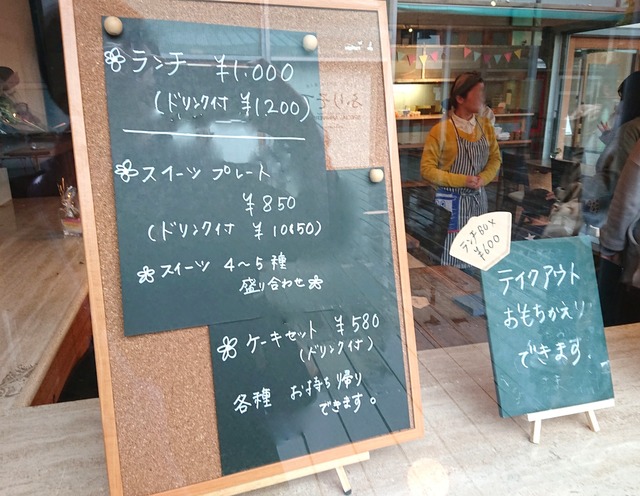 ランチー ¥1,000
(ドリンク付 ¥1200)
スイーツ プレート
¥850
(ドリンク付 ¥1050)
スイーツ 4〜5種
盛り合わせ
ケーキセット ¥580
(ドリンク付)
各種 お持ち帰り
できます。
ランチBOX
¥600
テイクアウト
おもちかえり
できます.